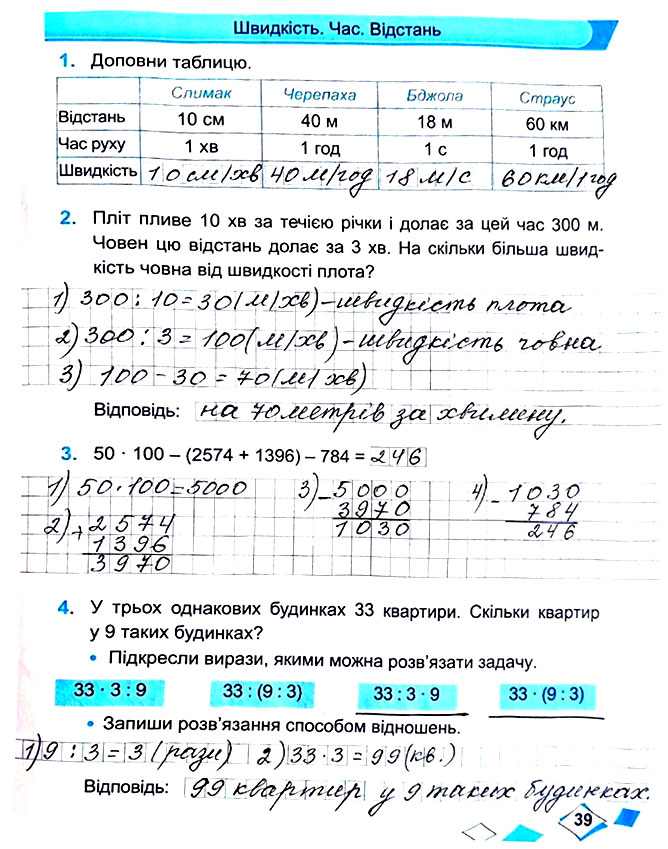 Швидкість. Час. Відстань
1. Доповни таблицю.
Слимак Черепаха Бджола Страус
Відстань 10 см 40 м 18 м 60 км
Час руху 1 хв 1 год 1 с 1 год
Швидкість 10 см/хв 40 м/год 18 м/с 60 км/1 год
2. Пліт пливе 10 хв за течією річки і долає за цей час 300 м.
Човен цю відстань долає за 3 хв. На скільки більша швид-
кість човна від швидкості плота?
1) 300 : 10 = 30 (м/хв) – швидкість плота
2) 300 : 3 = 100 (м/хв) – швидкість човна
3) 100 – 30 = 70 (м/хв)
Відповідь: на 70 метрів за хвилину.
3. 50 · 100 – (2574 + 1396) – 784 = 246
1) 50 · 100 = 5000 3) – 5000 4) – 1030
3970 784
2) + 2574 1030 246
1396
3970
4. У трьох однакових будинках 33 квартири. Скільки квартир
у 9 таких будинках?
• Підкресли вирази, якими можна розв'язати задачу.
33 · 3 : 9 33 : (9 : 3) 33 : 3 · 9 33 · (9 : 3)
• Запиши розв'язання способом відношень.
1) 9 : 3 = 3 (рази) 2) 33 · 3 = 99 (кв.)
Відповідь: 99 квартир у 9 таких будинках.
39